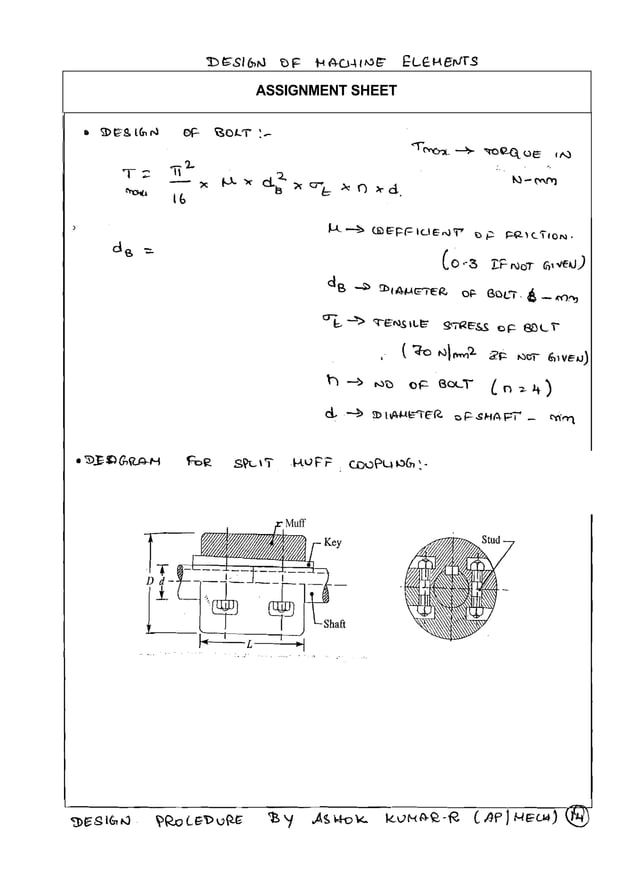 DESIGN OF MACHINE ELEMENTS
ASSIGNMENT SHEET
• DESIGN OF BOLT :-
Tmax → TORQUE IN
N-mm
T = π²/16 × μ × d_B² × σ_t × n × d.
max
μ → COEFFICIENT OF FRICTION.
(0.3 IF NOT GIVEN)
d_B =
d_B → DIAMETER OF BOLT - mm
σ_t → TENSILE STRESS OF BOLT
(70 N/mm² IF NOT GIVEN)
n → NO OF BOLT (n = 4)
d → DIAMETER OF SHAFT - mm
• DIAGRAM FOR SPLIT MUFF COUPLING:-
Muff
Key
Stud
D d
Shaft
L
DESIGN PROCEDURE BY ASHOK KUMAR-R (AP/MECH) 14